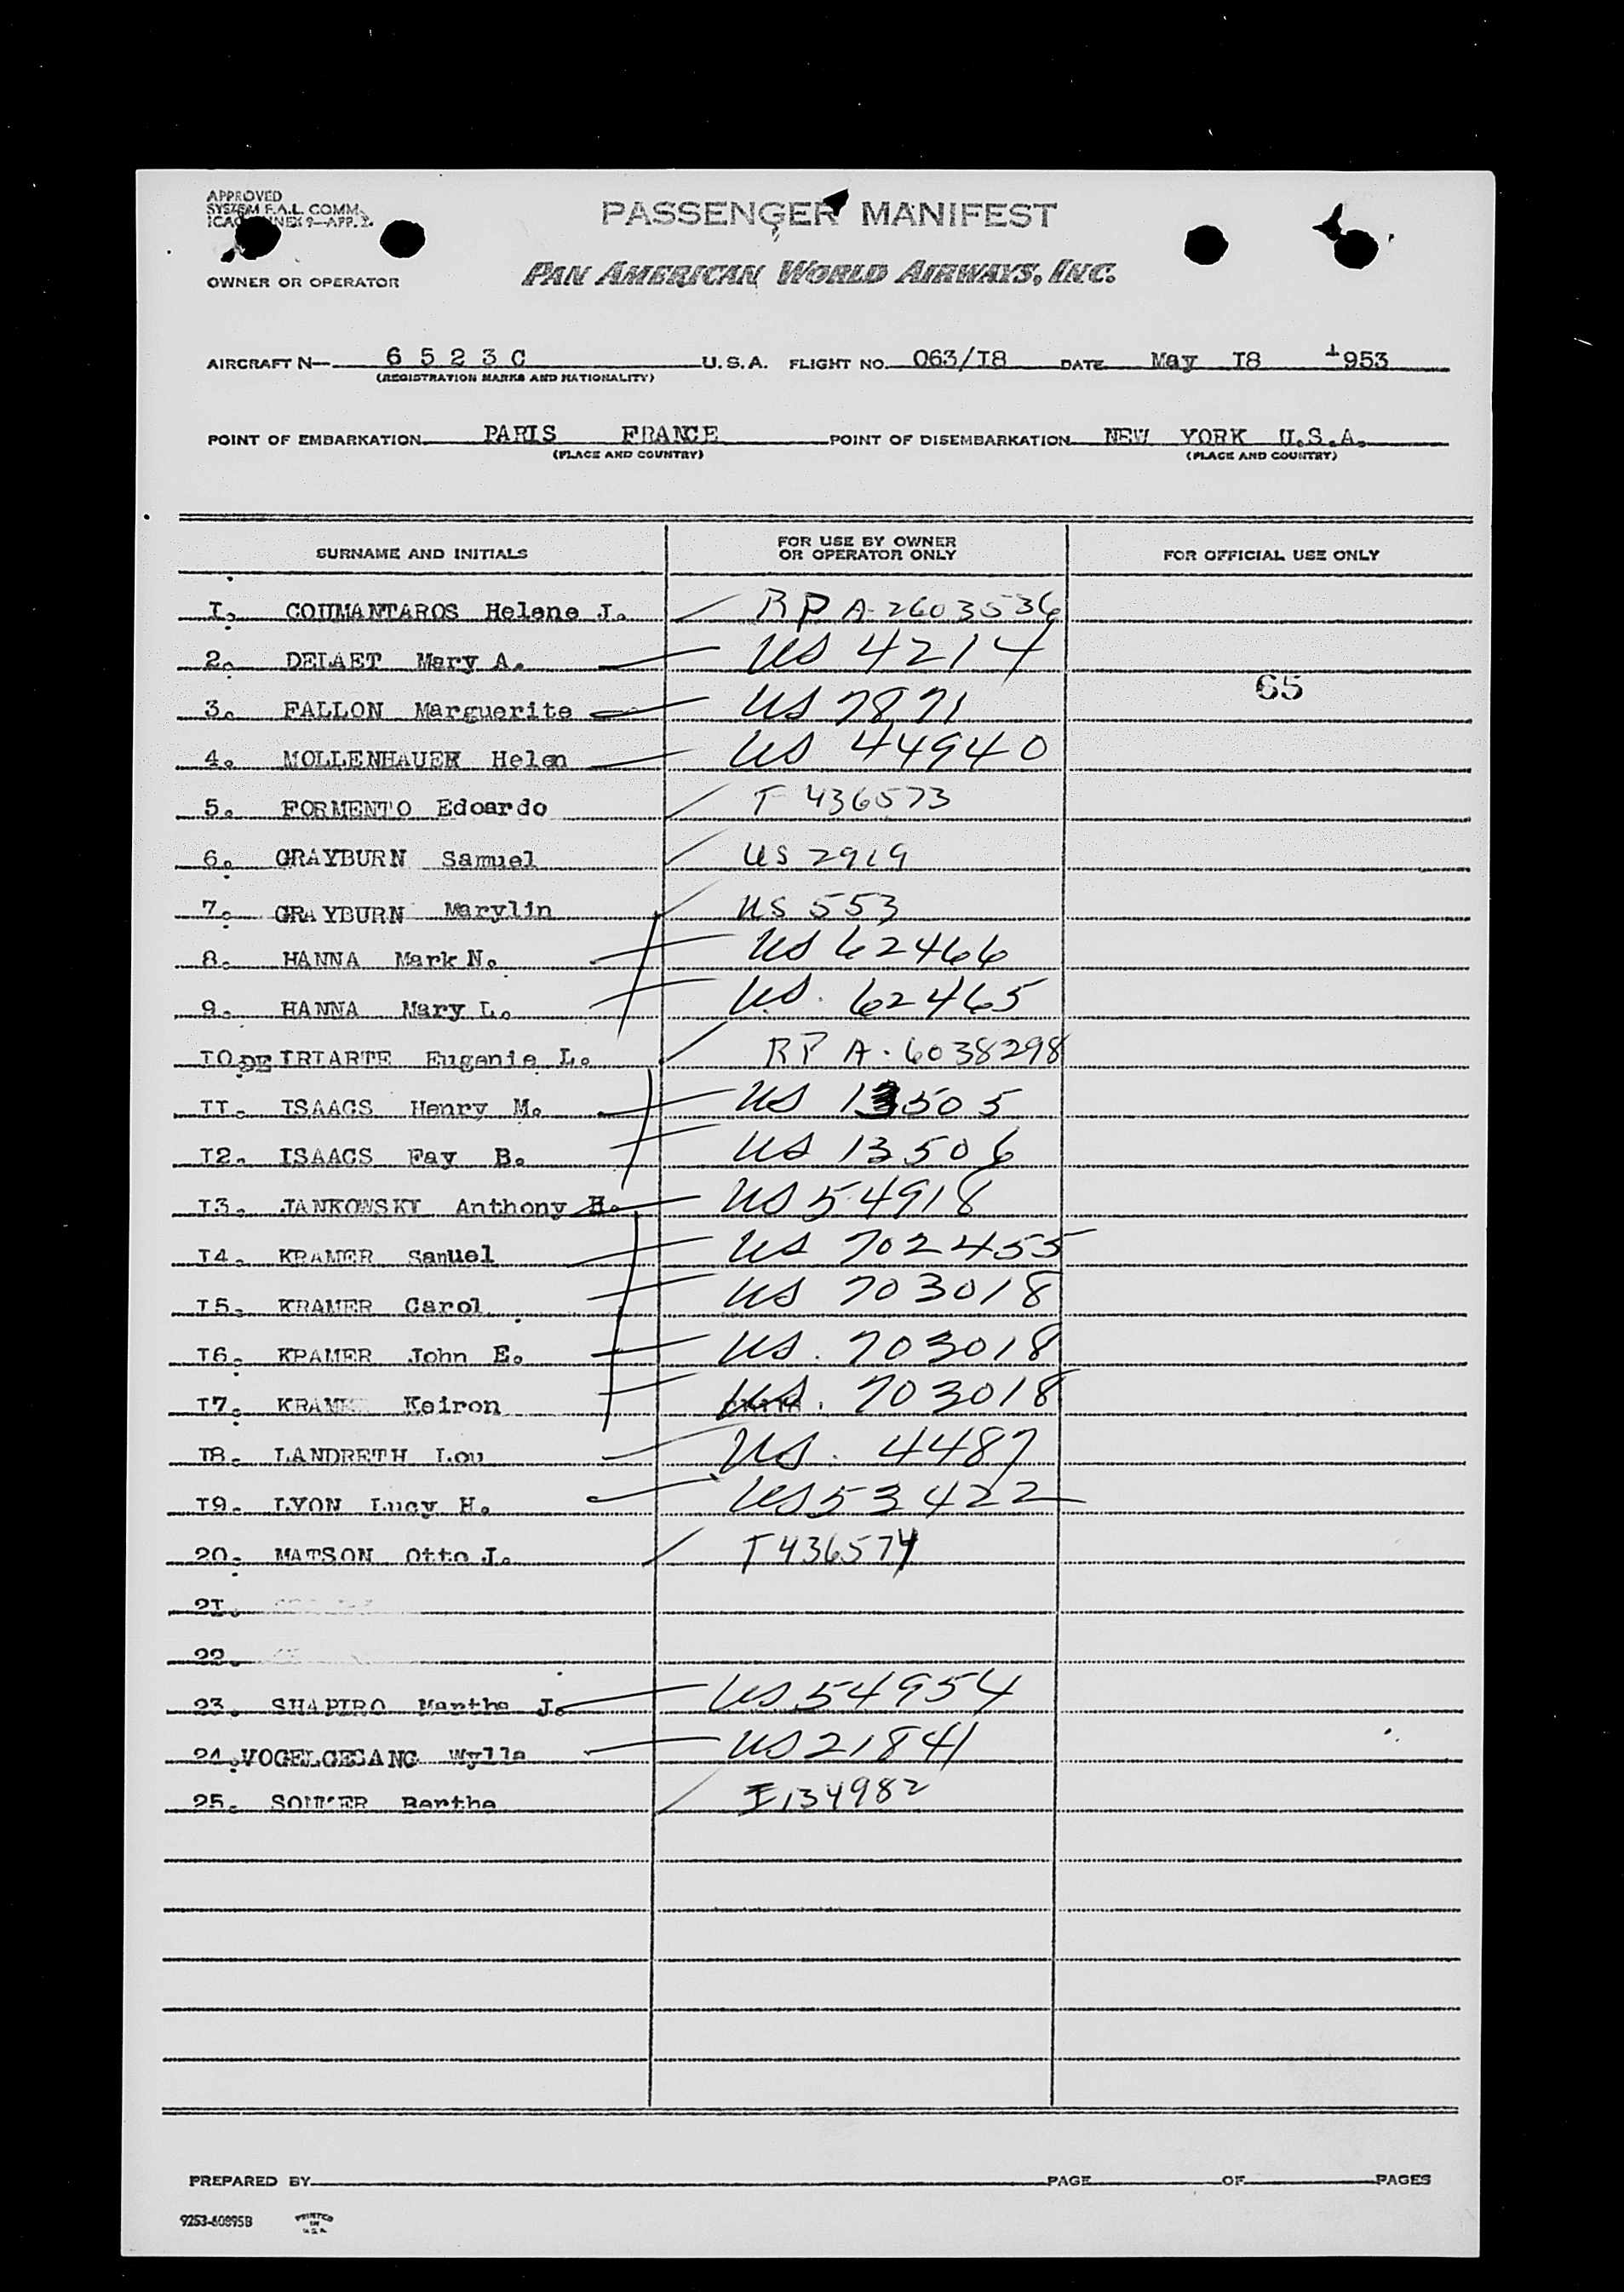 APPROVED
SYSTEM F.A.L. COMM.
ICAO ANNEX 9—APP. 2.
PASSENGER MANIFEST
OWNER OR OPERATOR
PAN AMERICAN WORLD AIRWAYS, INC.
AIRCRAFT N— 6 5 2 3 C U.S.A. FLIGHT NO. 063/I8 DATE May I8 1953
(REGISTRATION MARKS AND NATIONALITY)
POINT OF EMBARKATION PARIS FRANCE POINT OF DISEMBARKATION NEW YORK U.S.A.
(PLACE AND COUNTRY) (PLACE AND COUNTRY)
SURNAME AND INITIALS FOR USE BY OWNER OR OPERATOR ONLY FOR OFFICIAL USE ONLY
I. COUMANTAROS Helene J. RP A-2603536
2. DELAET Mary A. US 4214
65
3. FALLON Marguerite US 7871
4. MOLLENHAUER Helen US 44940
5. FORMENTO Edoardo T 436573
6. GRAYBURN Samuel US 2919
7. GRAYBURN Marylin US 553
8. HANNA Mark N. US 62466
9. HANNA Mary L. US. 62465
IO. DE IRIARTE Eugenie L. RP A-6038298
II. ISAACS Henry M. US 13505
I2. ISAACS Fay B. US 13506
I3. JANKOWSKY Anthony H. US 54918
I4. KRAMER Samuel US 702455
I5. KRAMER Carol US 703018
I6. KRAMER John E. US. 703018
I7. KRAMER Keiron US. 703018
I8. LANDRETH Lou US. 4487
I9. LYON Lucy H. US 53422
20. MATSON Otto J. T 436574
2I.
22.
23. SHAPIRO Martha J. US 54954
24. VOGELGESANG Wylla US 21841
25. SOMMER Bertha I 134982
PREPARED BY PAGE OF PAGES
9253-60895B PRINTED IN U.S.A.